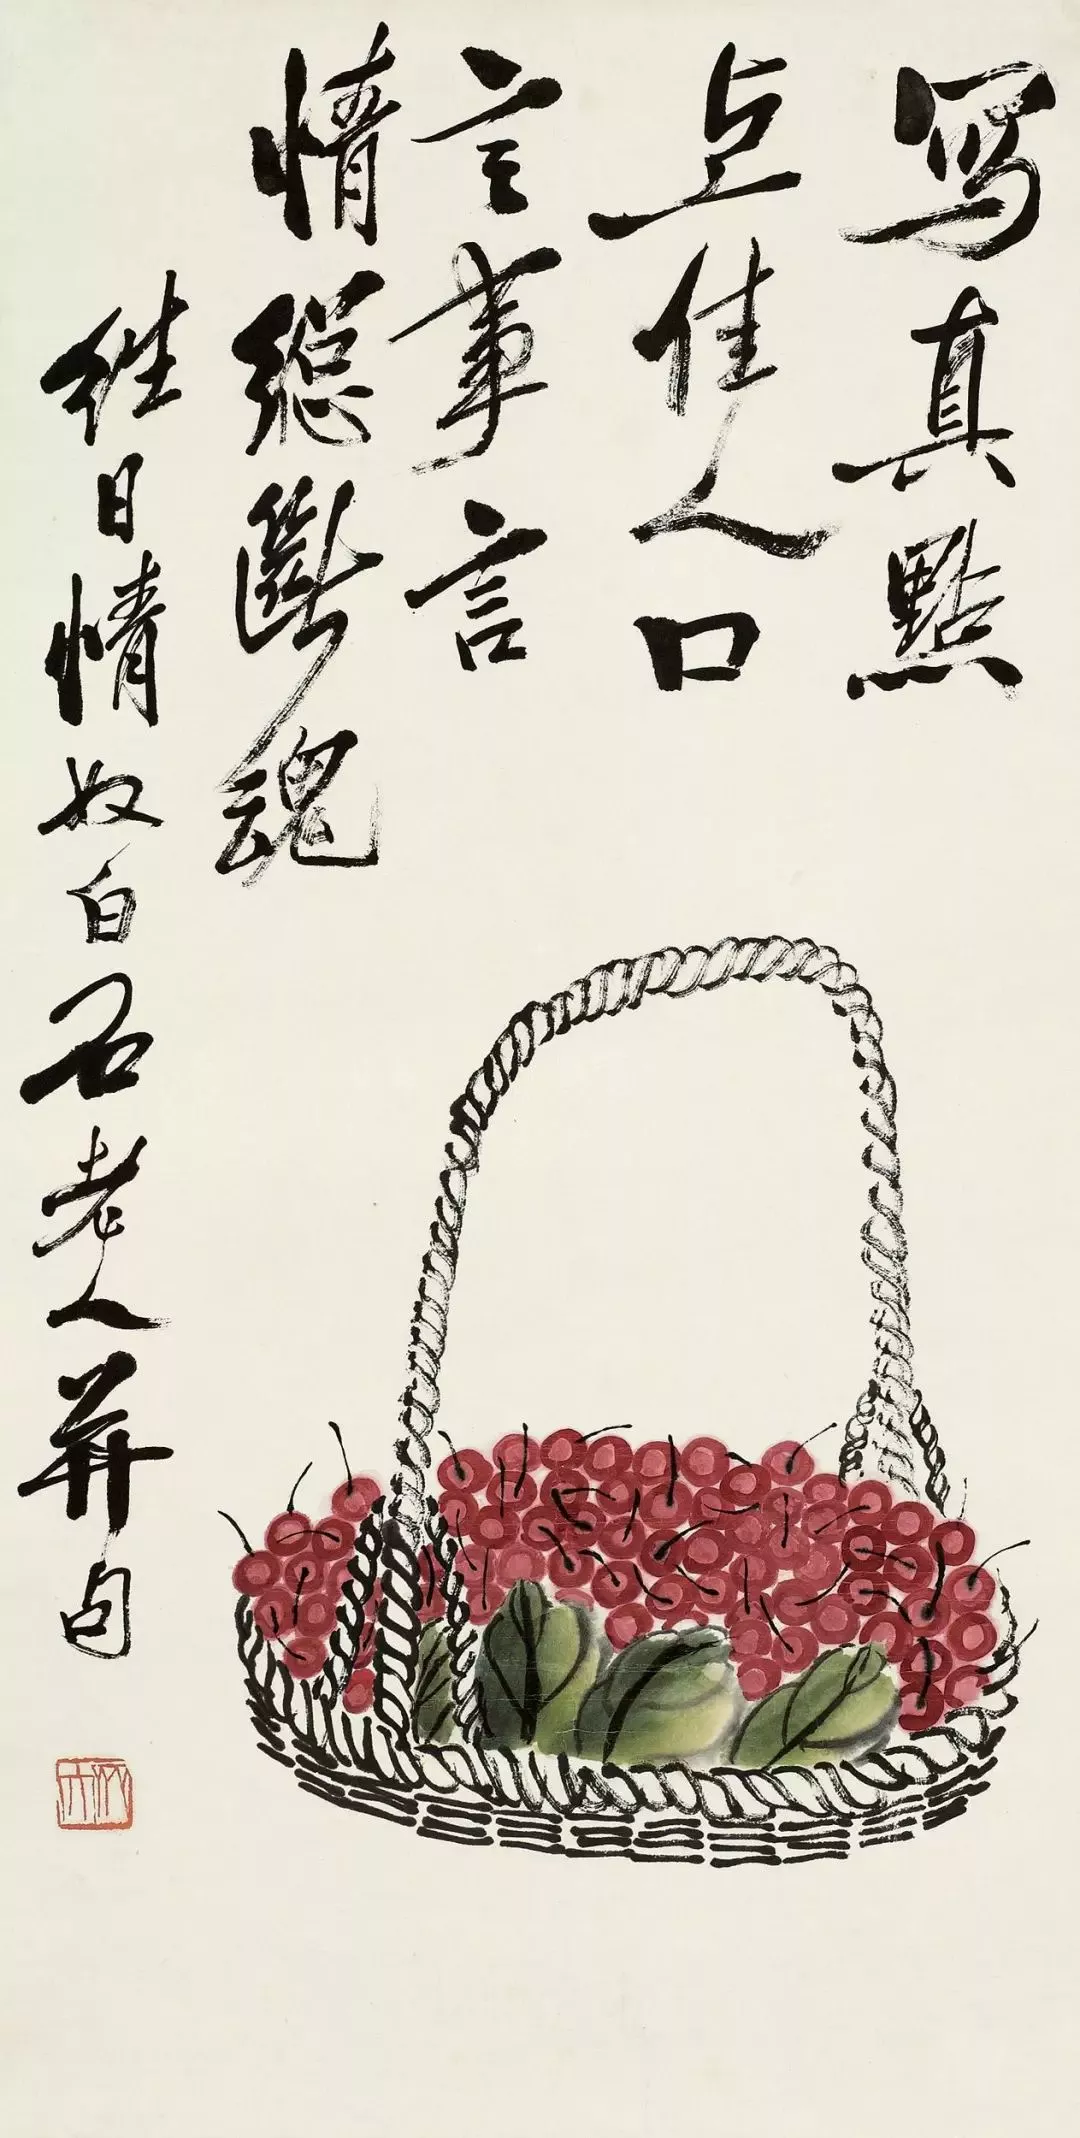 寫真點
上佳人口
言事言
情總斷魂
往日情奴白石老人并句